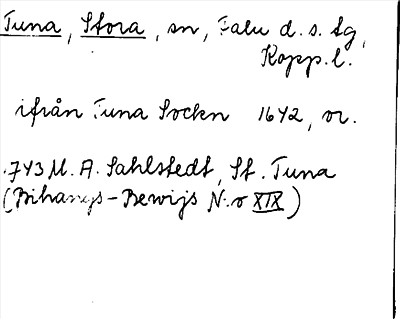 Tuna, Stora, sn, Falu d. s. tg,
Kopp. l.
ifrån Tuna Sockn 1642, or.
.743 M. A. Sahlstedt, St. Tuna
(Bihangs-Bewijs N:o XIX)